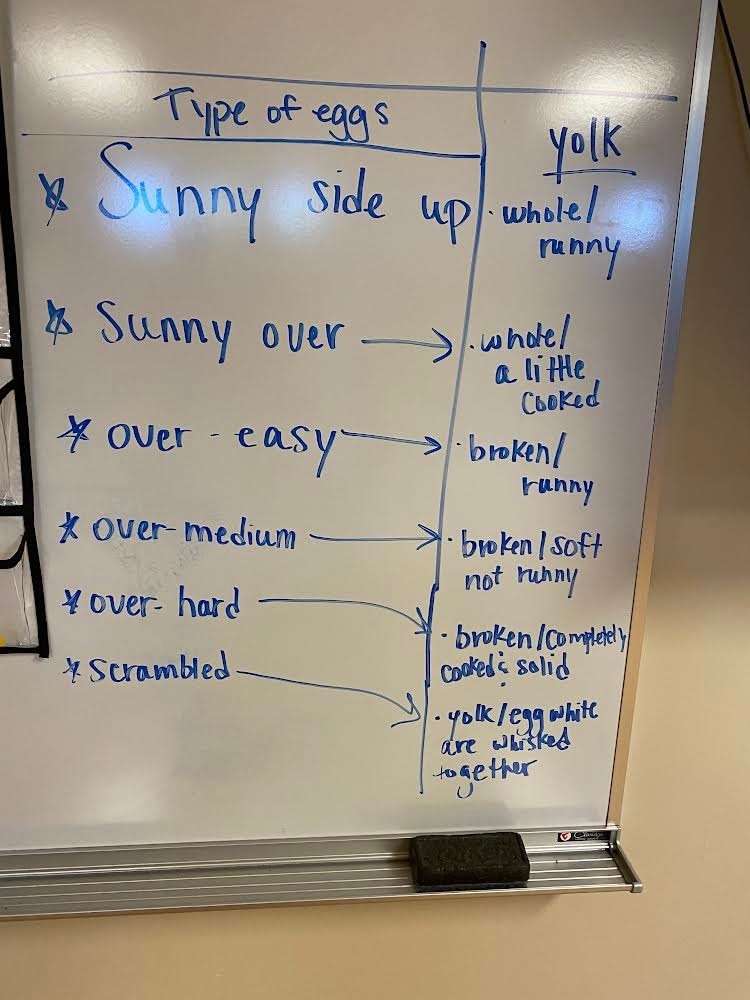 Type of eggs
yolk
Sunny side up
· whole/
runny
Sunny over
· whole/
a little
cooked
over-easy
· broken/
runny
over-medium
· broken/soft
not runny
over-hard
· broken/completely
cooked & solid
scrambled
· yolk/egg white
are whisked
together